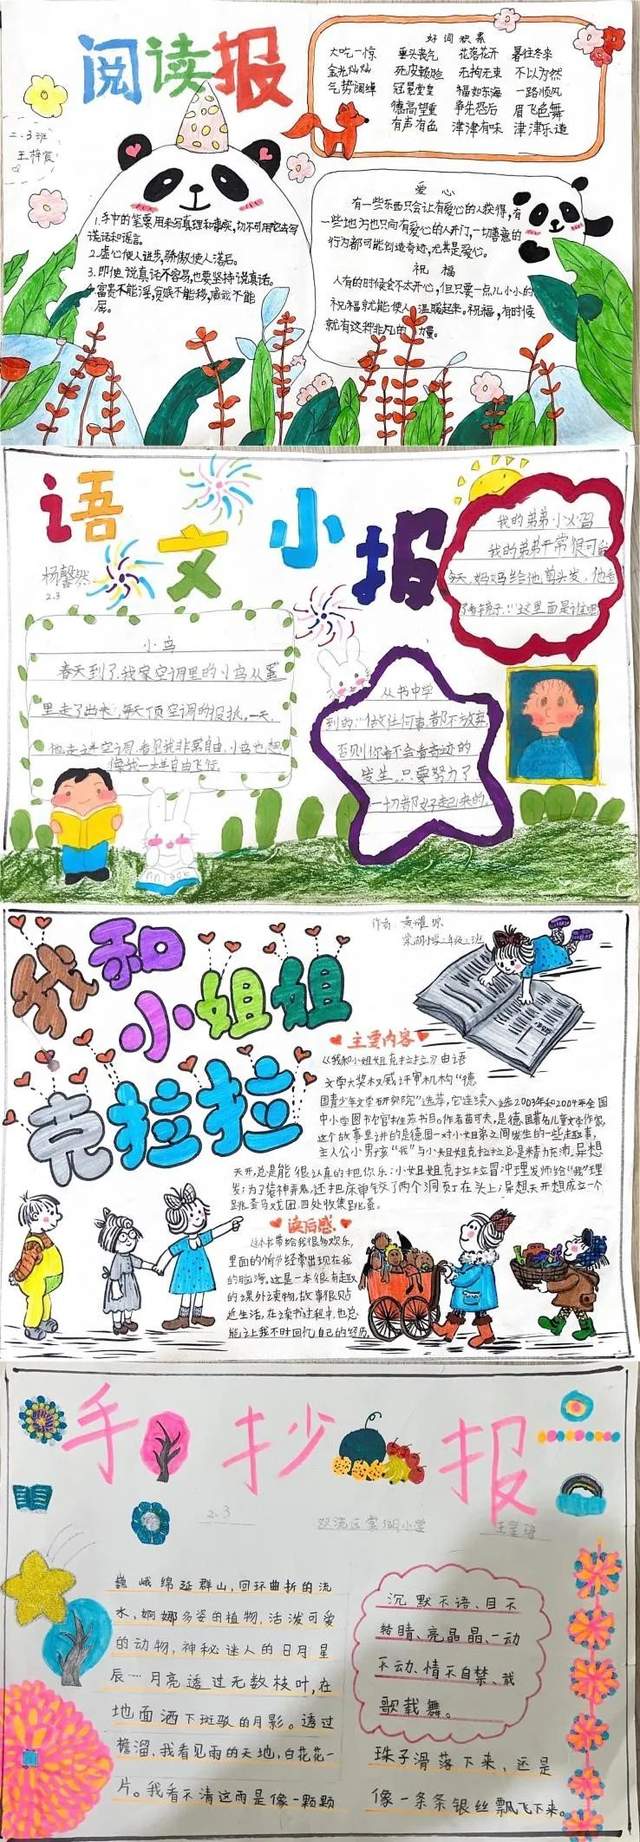 阅读报
二.3班
好词积累
大吃一惊 垂头丧气 花落花开 暑往冬来
金光灿灿 死皮赖脸 无拘无束 不以为然
气势澜绰 冠冕堂皇 福如东海 一路顺风
德高望重 争先恐后 眉飞色舞
有声有色 津津有味 津津乐道
1.手中的笔要用来写真理和事实,切不可用它去写
谎话和谣言。
2.虚心使人进步,骄傲使人落后。
3.即使说真话不容易,也要坚持说真话。
4.富贵不能淫,贫贱不能移,威武不能
屈。
爱心
有一些东西只会让有爱心的人获得,有
一些地方也只向有爱心的人开门,一切善意的
行为都可能创造奇迹,尤其是爱心。
祝福
人有的时候会不太开心,但只要一点儿小小的
祝福就能使人温暖起来。祝福,有时候
就有这莽非凡的力量。
语文小报
杨馨然
2.3
小鸟
春天到了,我家空调里的小鸟从蛋
里走了出来,每天顶空调的报扰,一天,
他走进空调,看见我非常自由,小鸟也想
像我一样自由飞行
我的弟弟小火习
我的弟弟非常很可
天,妈妈给他剪头发,他
了看镜子:"这里面是谁
从书中学
到的:做任何事都不放弃,
否则你看不会看奇迹的
发生,只要努力了
一切都好起来的。
我和
小姐姐
克拉拉
主要内容
《我和小姐姐克拉拉》由语
文学大奖权威评审机构"德
国青少年文学研究院"选荐,它连续入选2003年和2004年全国
中小学图书馆推荐书目。作者苗可夫,是德国著名儿童文学作家,
这个故事里讲的是德国一对小姐弟之间发生的一些趣事,
主人公小男孩"我"与小姐姐克拉拉总是精力充沛,异想
天开,总是能很认真的把你乐:小姐姐克拉拉冒冲理发师给"我"理
发;为了装神弄鬼,还把床单铰了两个洞顶在头上;异想天开想成立一个
跳蚤马戏团,四处收集跳蚤。
读后感
这本书带给我很多欢乐,
里面的情节经常出现在我
的脑海,这是一本很有趣
的课外读物,故事很贴
近生活,在读书过程中,也总
能让我不时回忆自己的经历。
手抄报
2.3
双流区棠湖小学
巍峨绵延群山,回环曲折的流
水,婀娜多姿的植物,活泼可爱
的动物,神秘迷人的日月星
辰…月亮透过无数枝叶,在
地面洒下斑驳的月影。透过
檐溜,我看见雨的天地,白花花一
片。我看不清这雨是像一颗颗
沉默不语、目不
转睛、亮晶晶、一动
不动、情不自禁、载
歌载舞。
珠子滑落下来,还是
像一条条银丝飘飞下来。